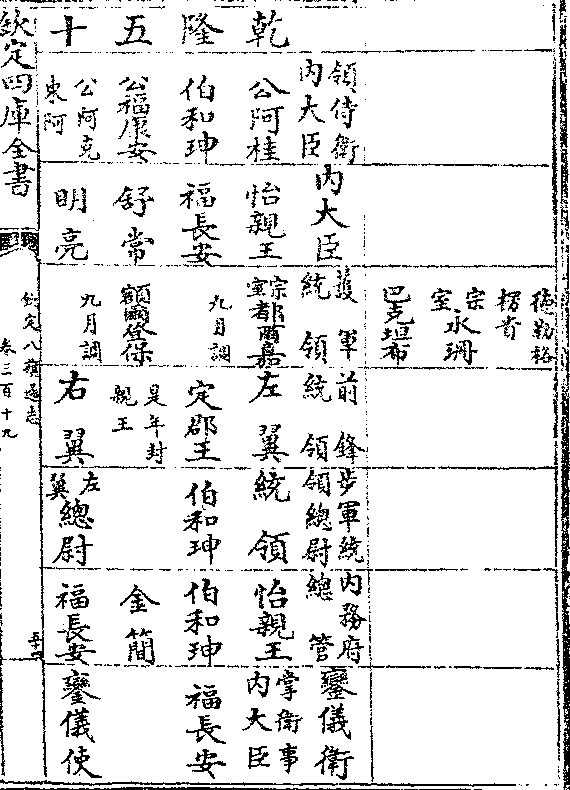 乾隆五十
領侍衛
内大臣
公阿桂
伯和珅
公福康安
公阿克
東阿
内大臣
怡親王
福長安
舒常
明亮
德勒格
楞貴
宗室永珊
巴克坦布
護軍
統領
宗室都爾嘉
九月調
額爾登保
九月調
前鋒
統領
左翼
定郡王
是年封
親王
右翼
步軍統
領總尉
統領
伯和珅
左翼總尉
内務府
總管
怡親王
伯和珅
金簡
福長安
鑾儀衛
掌衛事
内大臣
福長安
鑾儀使
欽定四庫全書
欽定八旗通志
卷三百十九